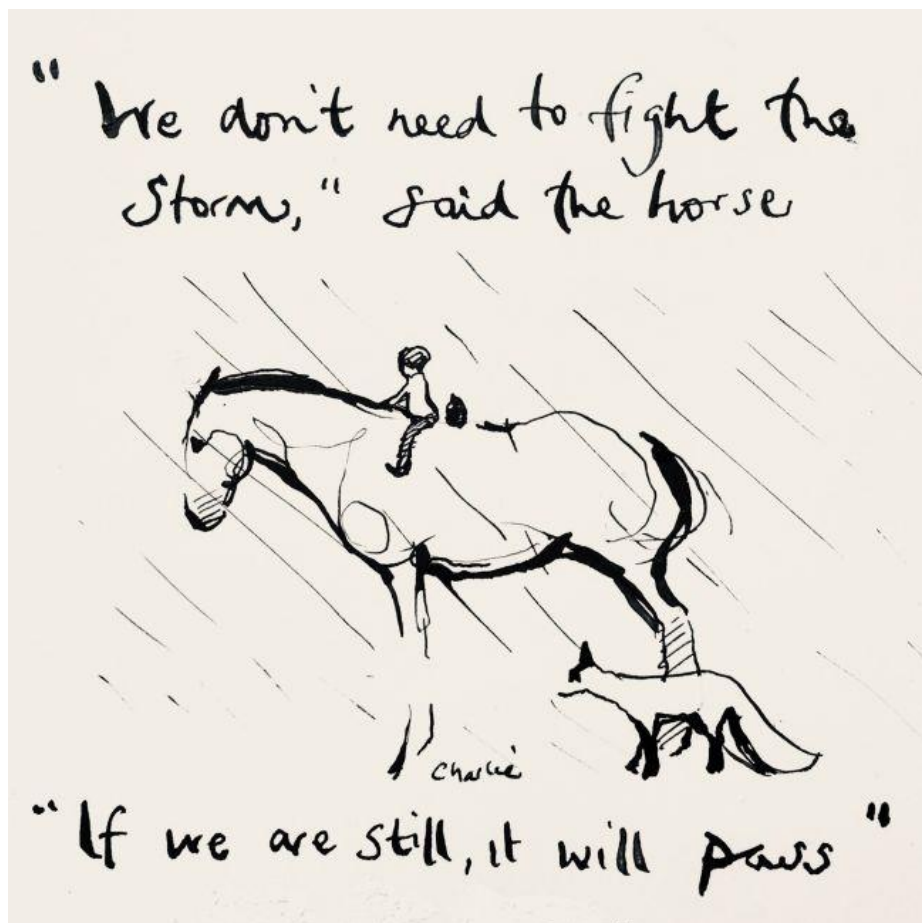 "We don't need to fight the
Storm," said the horse
Charlie
"If we are still, it will pass"